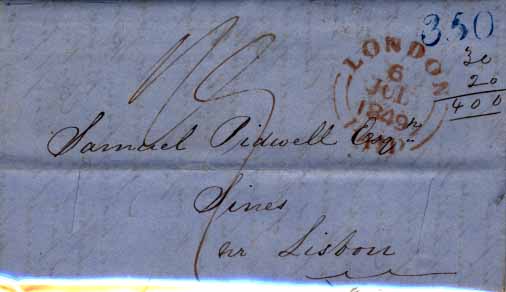 350
30
20
400
LONDON
6
JUL
1849
Samuel Pidwell Esqr
Sines
nr Lisbon